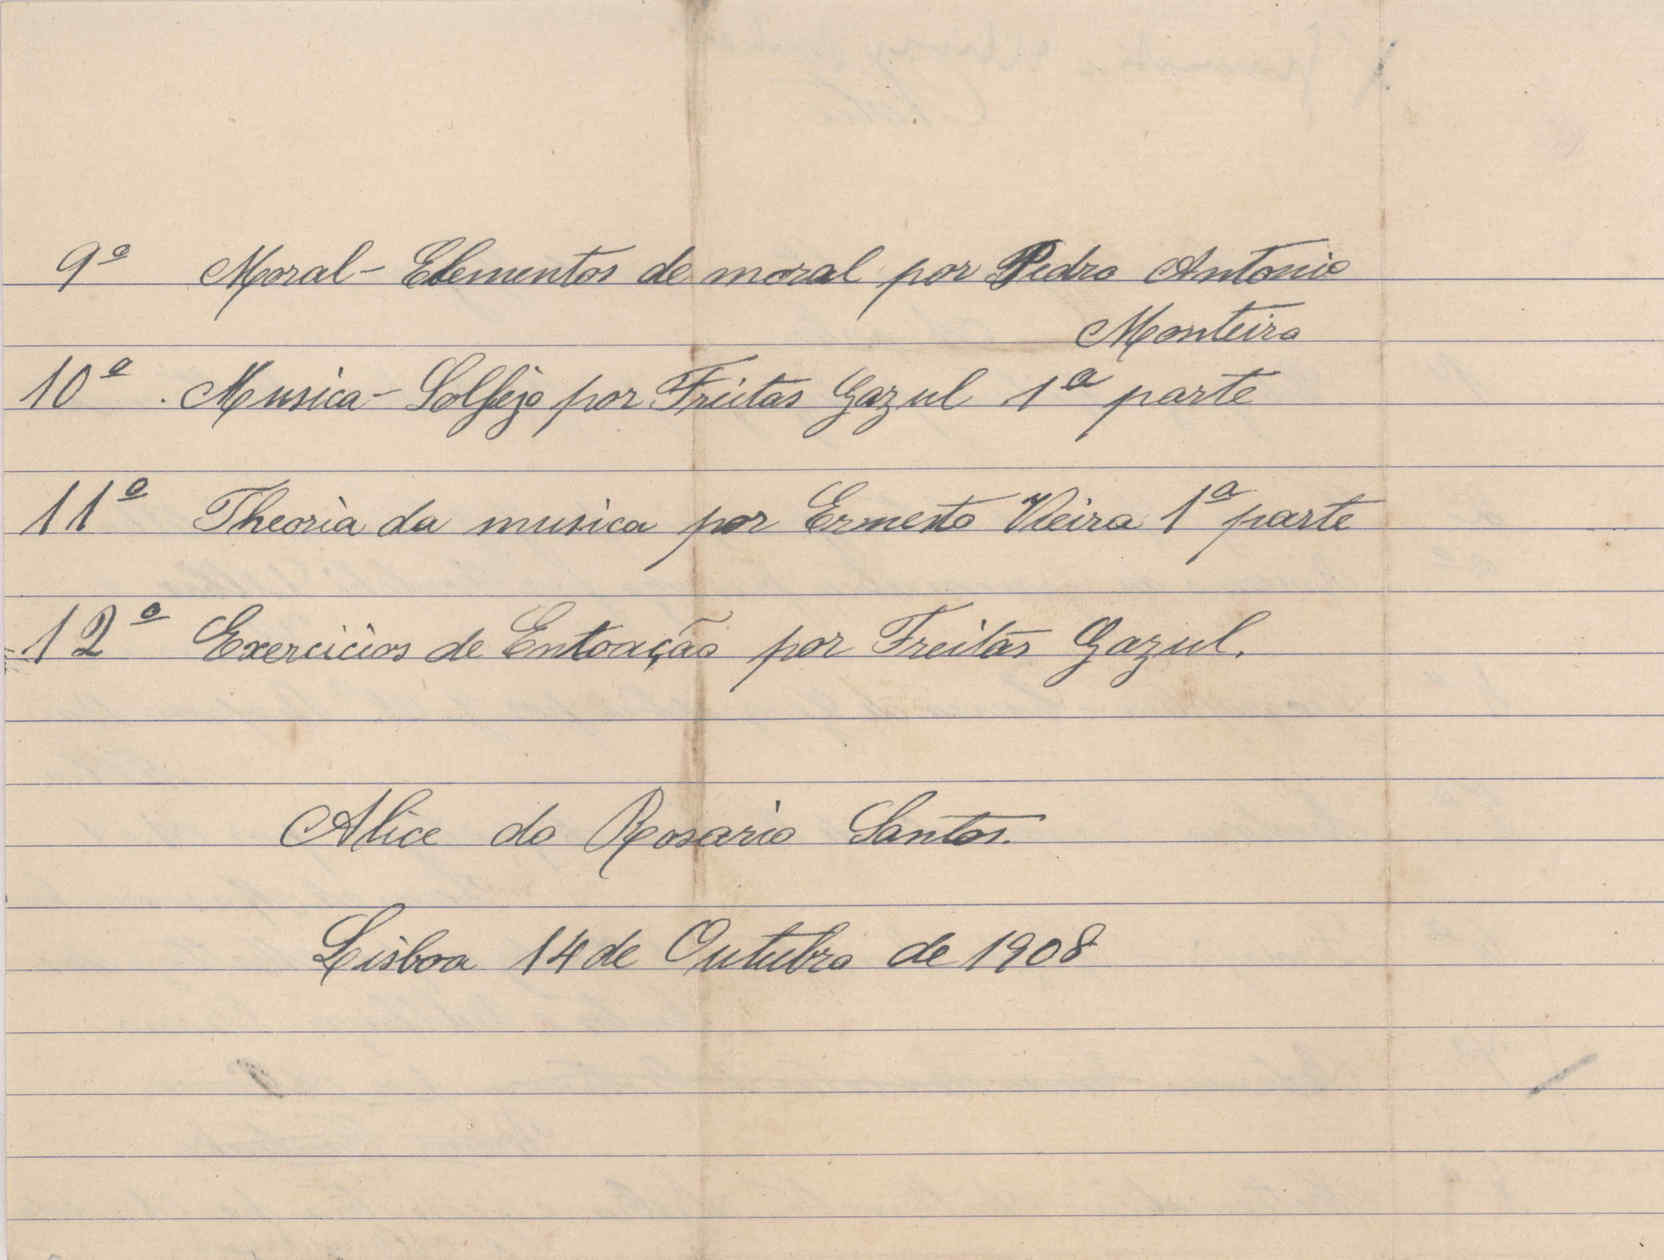 9ª Moral - Elementos de moral por Pedro Antonio
Monteiro
10ª . Musica - Solfejo por Freitas Gazul 1ª parte
11ª Theoria da musica por Ernesto Vieira 1ª parte
12ª Exercicios de Entoação por Freitas Gazul.
Alice do Rosario Santos.
Lisboa 14 de Outubro de 1908